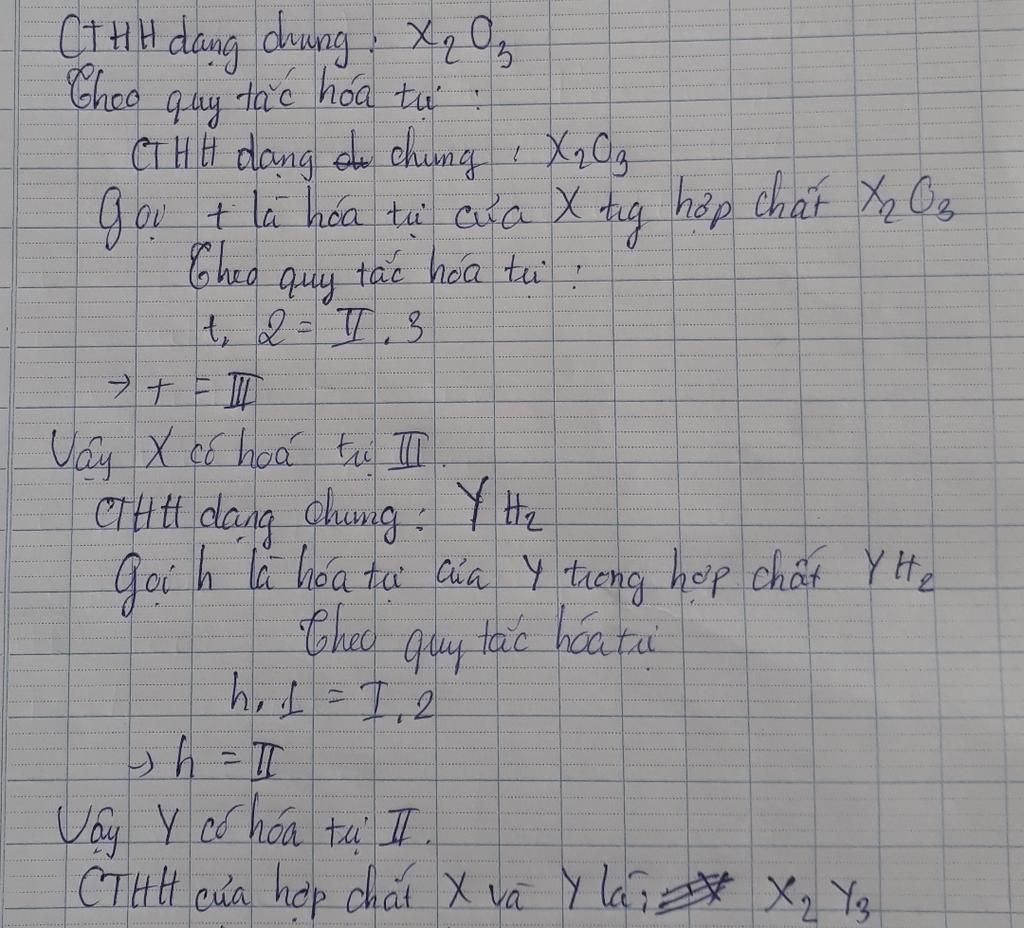 CTHH dạng chung : X₂O₃
Theo quy tắc hóa trị :
CTHH dạng chung : X₂O₃
Gọi t là hóa trị của X trg hợp chất X₂O₃
Theo quy tắc hóa trị :
t. 2 = II . 3
→ t = III
Vậy X có hoá trị III.
CTHH dạng chung : YH₂
Gọi h là hóa trị của Y trong hợp chất YH₂
Theo quy tắc hóa trị
h. 1 = I. 2
→ h = II
Vậy Y có hóa trị II.
CTHH của hợp chất X và Y là : X₂Y₃